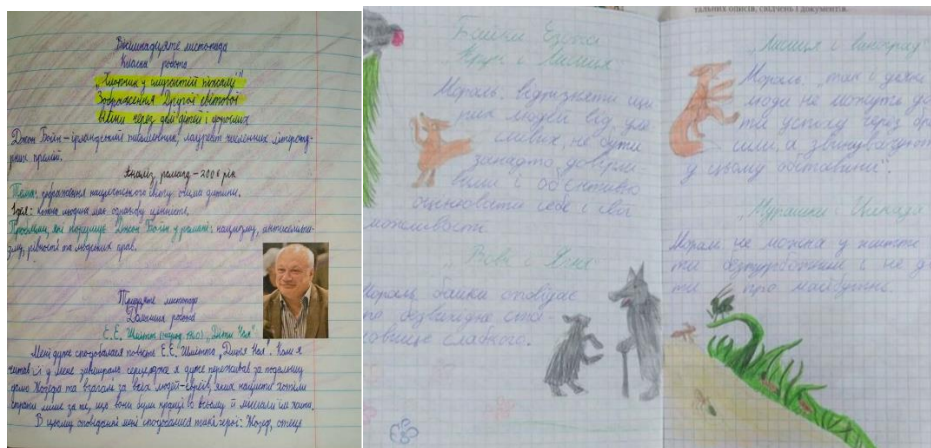 Вісімнадцяте листопада
Класна робота
„Хлопчик у смугастій піжамі"
Зображення Другої світової
війни через дві дітей і дорослих
Джон Бойн – ірландський письменник, лауреат численних літератур-
них премій.
Аналіз роману – 2006 рік
Тема: зображення нацистського очима дитини.
Ідея: кожна людина має однакову цінність.
Проблеми, які порушує Джон Бойн у романі: нацизму, антисемітиз-
му, рівності та людських прав.
Тридцяте листопада
Домашня робота
Е.Е. Шмітт „Діти Ноя"
Мені дуже сподобалася повість Е.Е. Шмітта „Діти Ноя". Коли я
читав її у мене завмирало серце, адже я дуже переживав за подальшу
долю Жозефа та взагалі за всіх людей-євреїв, яких нацисти хотіли
стратити лише за те, що вони були кращі во всьому й мислили їм.
В цьому оповіданні мені сподобалися такі герої: Жозеф, отець
тальних описів, свідчень і документів.
Байки Езопа
Крук і Лисиця
Мораль: відрізняти щи
рих людей від уле
сливих, не бути
занадто довірли
вими і об'єктивно
оцінювати себе і свої
можливості.
Вовк і Ягня
Мораль байки оповідає
про безвихідне ста-
новище слабкого.
„Лисиця і виноград"
Мораль „так і деякі
люди не можуть до
ти успіху через бра
сили, а звинувачують
у цьому обставини".
Мурашки і Цикада
Мораль: не можна у житті
ти безтурботним і не д
ти про майбутнє.